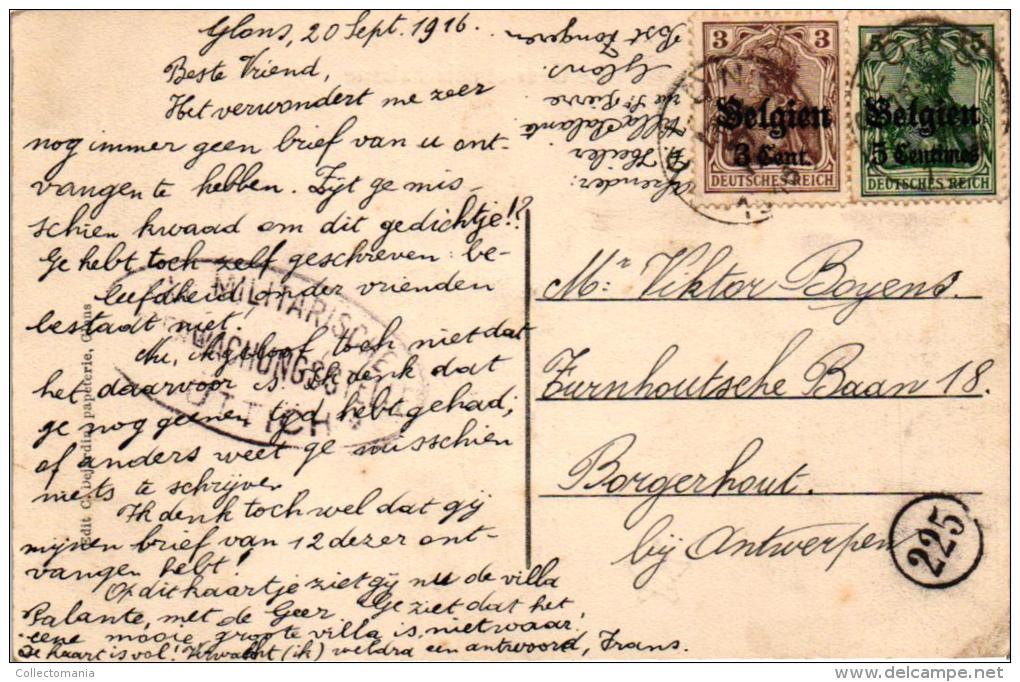 Glons, 20 Sept. 1916.
Beste Vriend,
Het verwondert me zeer
nog immer geen brief van u ont-
vangen te hebben. Zijt ge mis-
schien kwaad om dit gedichtje!?
Ge hebt toch zelf geschreven: be-
leefdheid onder vrienden
bestadt niet!
Nu, ik geloof toch niet dat
het daarvoor is. Ik denk dat
ge nog geenen tijd hebt gehad;
of anders weet ge misschien
niets te schrijven
Ik denk toch wel dat gij
mijnen brief van 12 dezer ont-
vangen hebt!
Op dit kaartje ziet gij nu de villa
Palante, met de Geer. Ge ziet dat het
eene mooie, groote villa is, niet waar,
De kaart is vol! Verwacht (ik) weldra een antwoord, Frans.
Afzender:
Villa Palante
rue St Pierre
Glons.
Post Tongeren
3 3
Belgien
3 Cent.
DEUTSCHES REICH
5 5
Belgien
5 Centimes
DEUTSCHES REICH
MILITÄRISCHE
ÜBERWACHUNGSSTELLE
LÜTTICH
Mr: Viktor Boyens.
Turnhoutsche Baan 18.
Borgerhout.
bij Antwerpen
225
Edit C. Dejardin, papeterie, Glons
Collectomania
www.delcampe.net